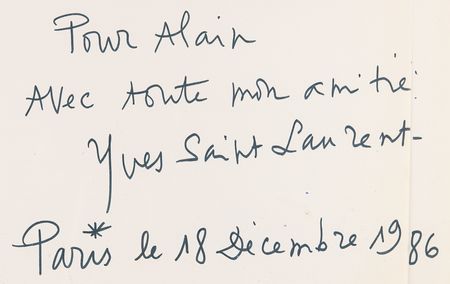 Pour Alain
Avec toute mon amitié
Yves Saint Laurent-
Paris le 18 Décembre 1986